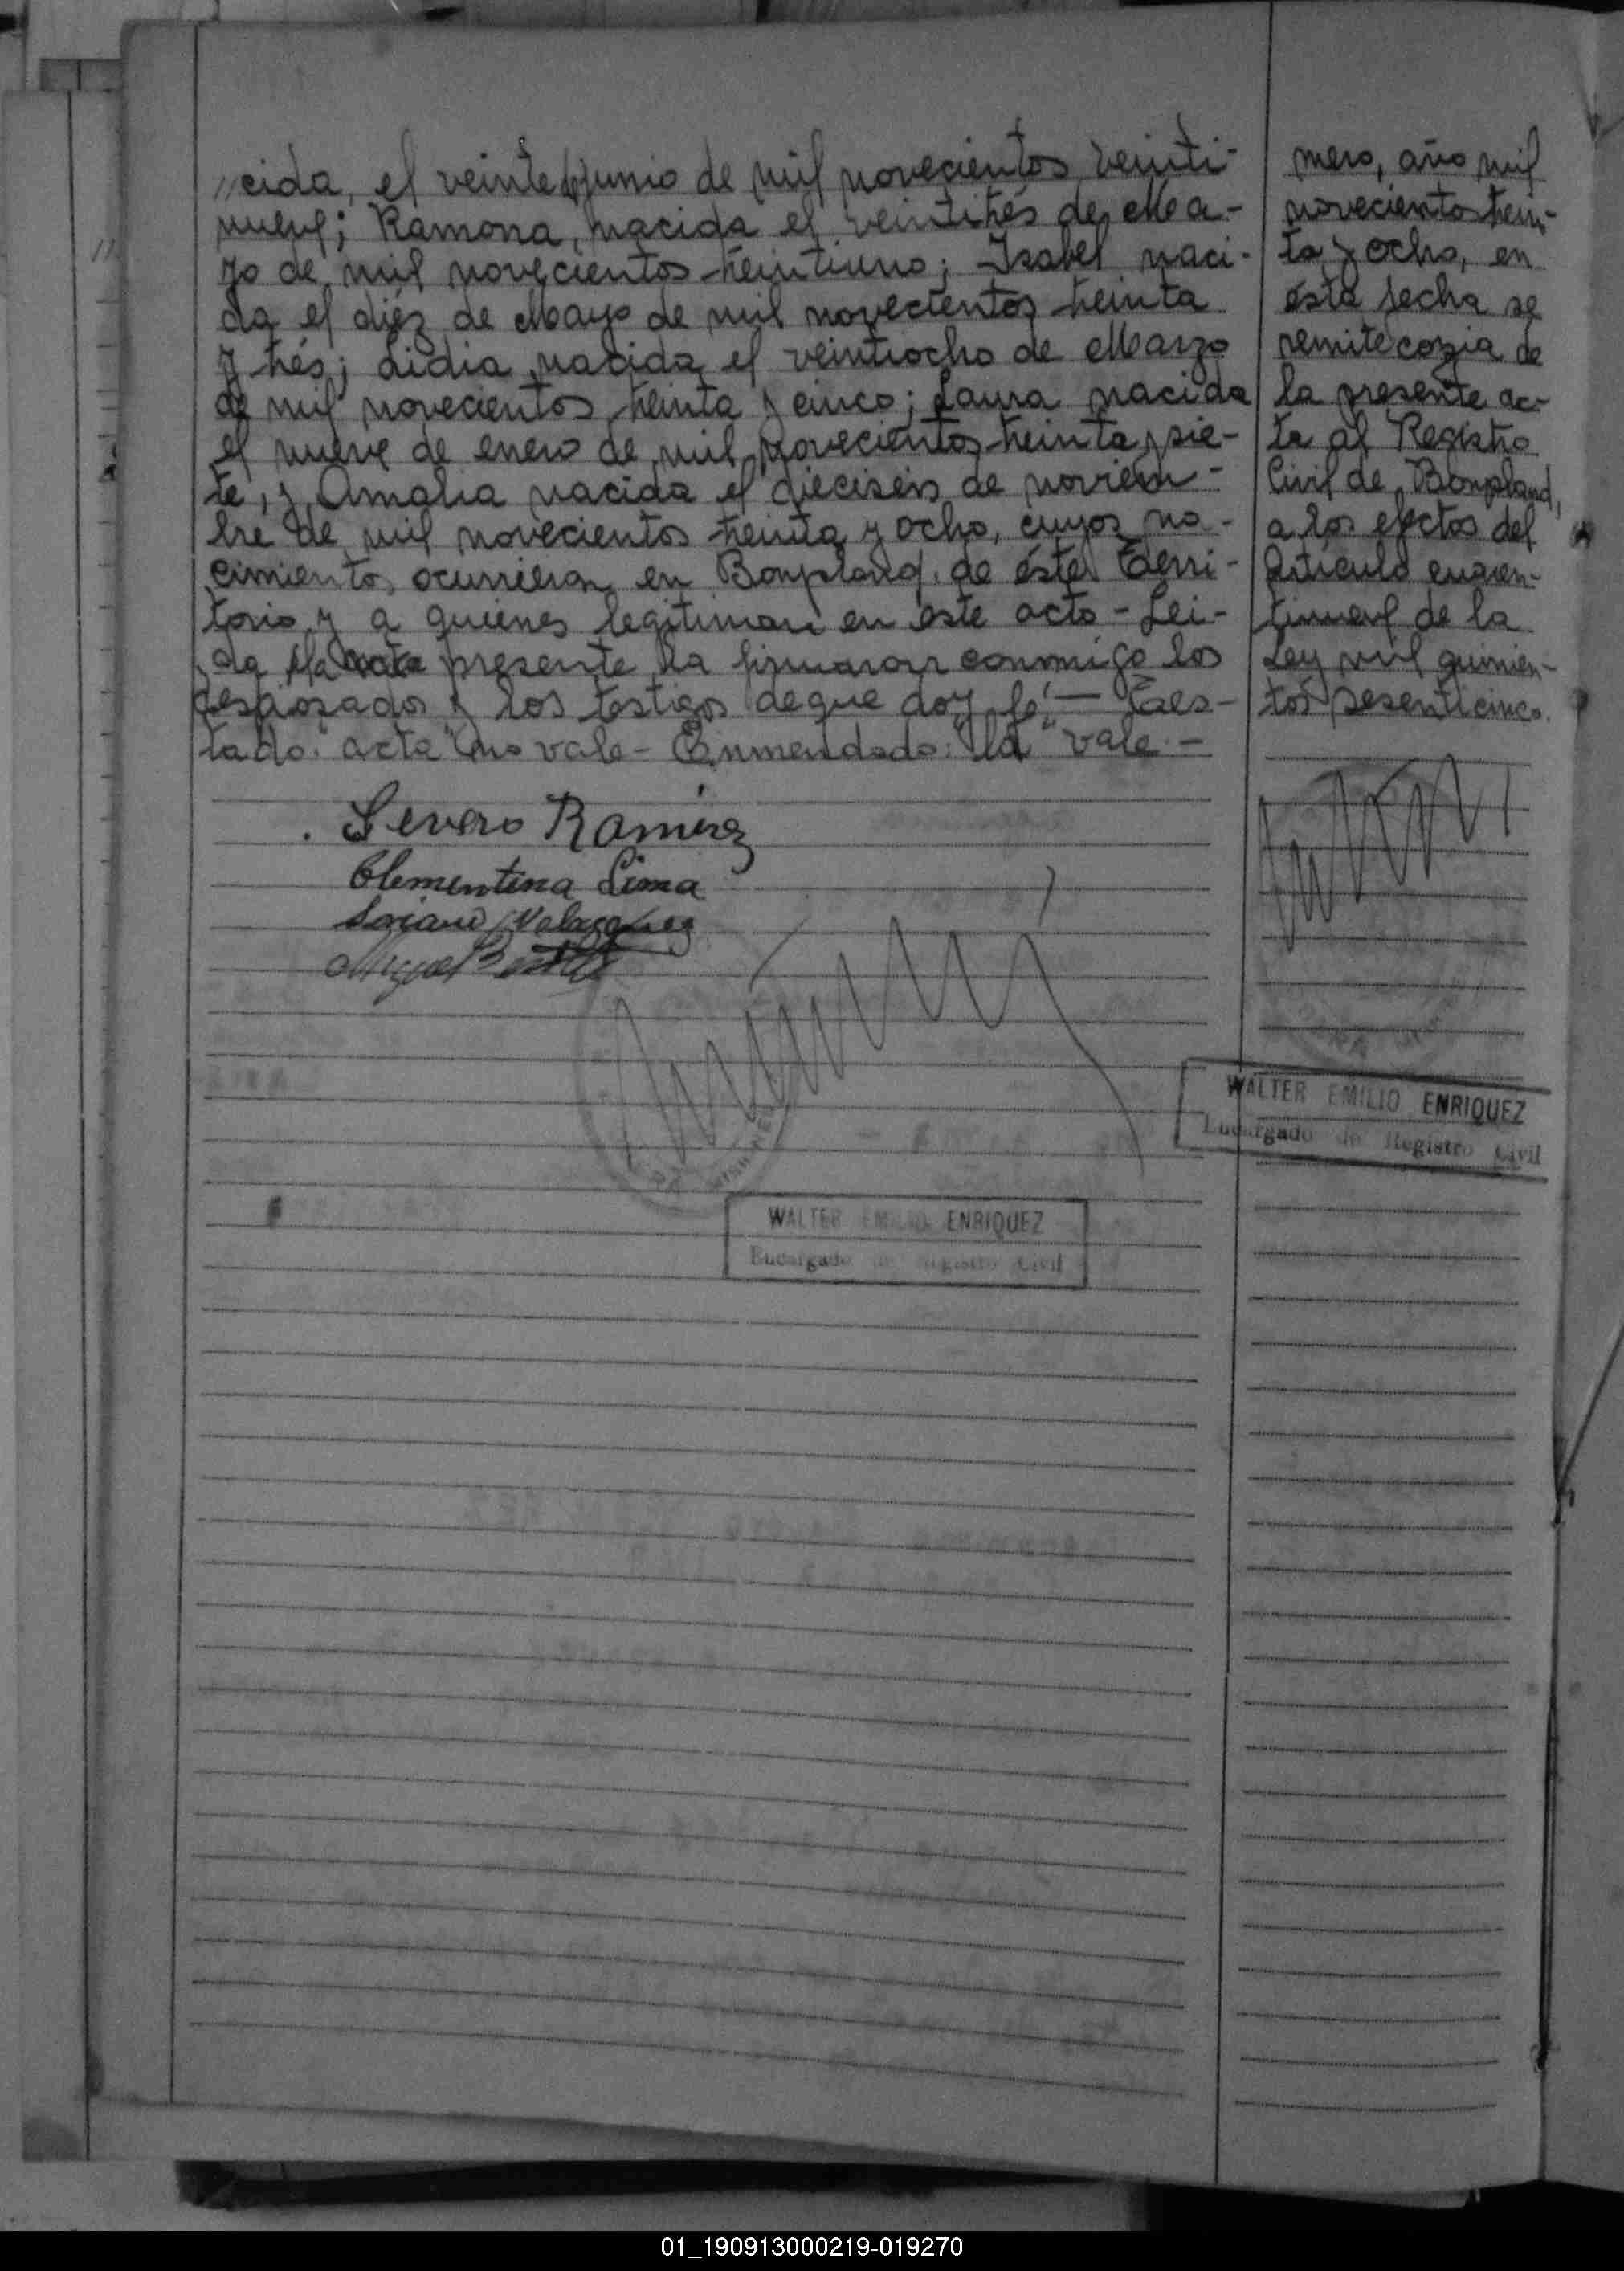 //cida, el veinte de junio de mil novecientos veinti-
nueve; Ramona, nacida el veintitrés de Ma-
yo de mil novecientos treintiuno; Isabel naci-
da el diéz de Mayo de mil novecientos treinta
y trés; Lidia nacida el veintiocho de Marzo
de mil novecientos treinta y cinco; Laura nacida
el nueve de enero de mil novecientos treinta y sie-
te, y Amalia nacida el dieciseis de noviem-
bre de mil novecientos treinta y ocho, cuyos na-
cimientos ocurrieron en Bonpland, de éste Terri-
torio y a quienes legitiman en este acto - Lei-
da la acta presente la firmaron conmigo los
desposados y los testigos de que doy fé — Tes-
tado: "acta" no vale - Enmendado: "la" vale.-
Severo Ramirez
Clementina Lima
Velazquez
Miguel
WALTER EMILIO ENRIQUEZ
Encargado de Registro Civil
mero, año mil
novecientos trein-
ta y ocho, en
ésta fecha se
remite copia de
la presente ac-
ta al Registro
Civil de Bonpland,
a los efectos del
Artículo cuaren-
tinueve de la
Ley mil quinien-
tos sesenticinco.
WALTER EMILIO ENRIQUEZ
Encargado de Registro Civil
01_190913000219-019270